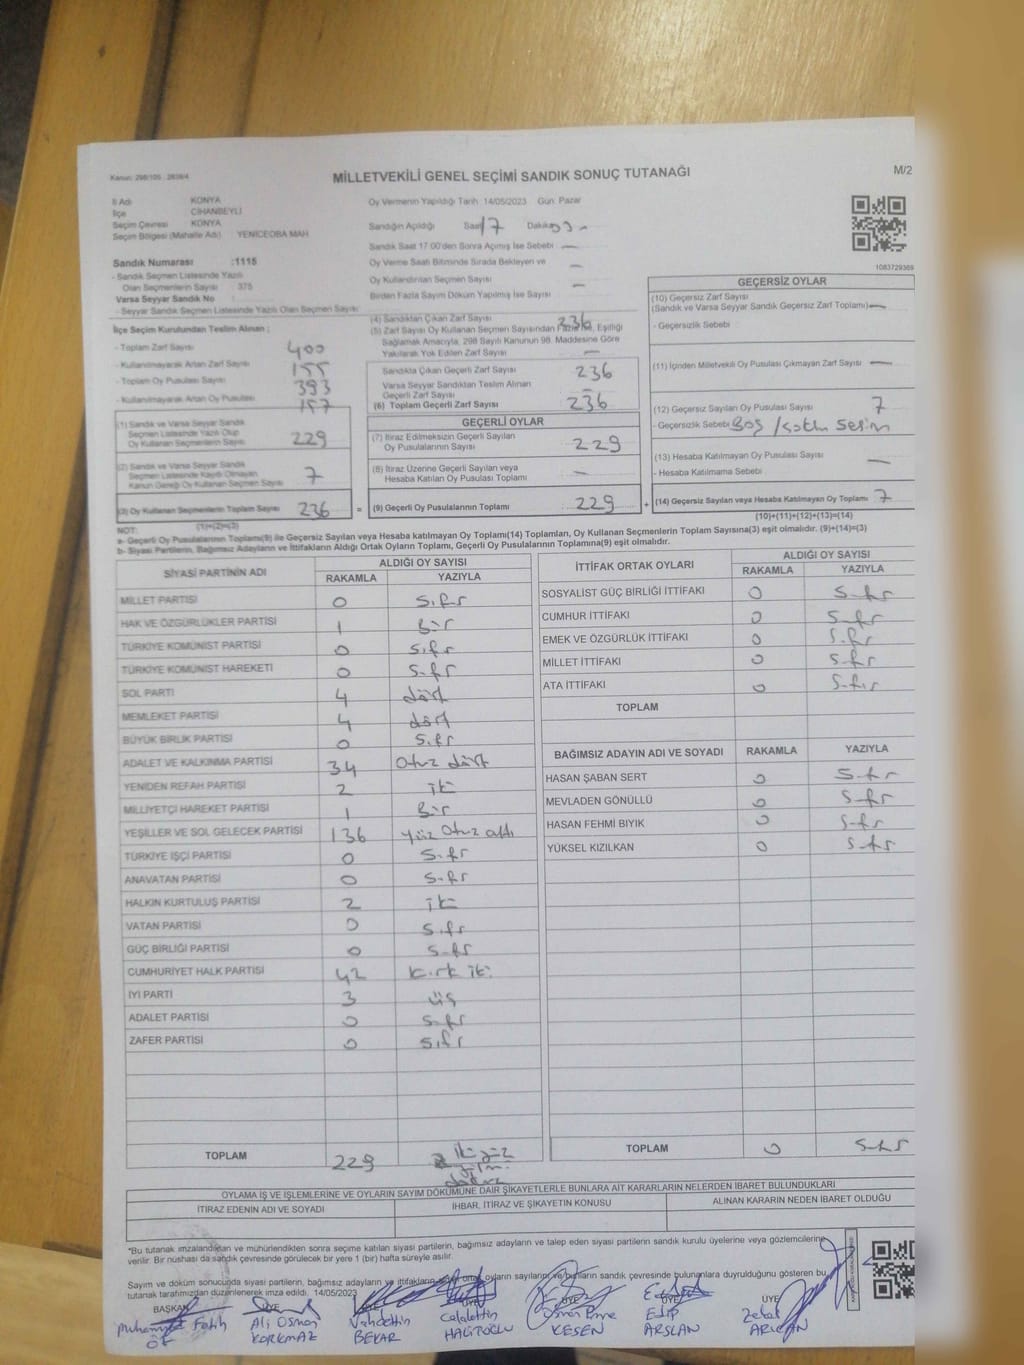 Kanun: 298/105 , 2839/4
MİLLETVEKİLİ GENEL SEÇİMİ SANDIK SONUÇ TUTANAĞI
M/2
İl Adı KONYA
İlçe CİHANBEYLİ
Seçim Çevresi KONYA
Seçim Bölgesi (Mahalle Adı) YENİCEOBA MAH
Sandık Numarası :1115
- Sandık Seçmen Listesinde Yazılı
Olan Seçmenlerin Sayısı 375
Varsa Seyyar Sandık No
- Seyyar Sandık Seçmen Listesinde Yazılı Olan Seçmen Sayısı
İlçe Seçim Kurulundan Teslim Alınan ;
- Toplam Zarf Sayısı 400
- Kullanılmayarak Artan Zarf Sayısı 155
- Toplam Oy Pusulası Sayısı 393
- Kullanılmayarak Artan Oy Pusulası 157
(1) Sandık ve Varsa Seyyar Sandık
Seçmen Listesinde Yazılı Olup
Oy Kullanan Seçmenlerin Sayısı 229
(2) Sandık ve Varsa Seyyar Sandık
Seçmen Listesinde Kayıtlı Olmayan
Kanun Gereği Oy Kullanan Seçmen Sayısı 7
(3) Oy Kullanan Seçmenlerin Toplam Sayısı 236
(1)+(2)=(3)
Oy Vermenin Yapıldığı Tarih 14/05/2023 Gün: Pazar
Sandığın Açıldığı Saat 17 Dakika
Sandık Saat 17:00'den Sonra Açılmış İse Sebebi —
Oy Verme Saati Bitiminde Sırada Bekleyen ve
Oy Kullandırılan Seçmen Sayısı —
Birden Fazla Sayım Döküm Yapılmış İse Sayısı —
(4) Sandıktan Çıkan Zarf Sayısı 236
(5) Zarf Sayısı Oy Kullanan Seçmen Sayısından Fazla İse, Eşitliği
Sağlamak Amacıyla, 298 Sayılı Kanunun 98. Maddesine Göre
Yakılarak Yok Edilen Zarf Sayısı —
Sandıkta Çıkan Geçerli Zarf Sayısı 236
Varsa Seyyar Sandıktan Teslim Alınan
Geçerli Zarf Sayısı —
(6) Toplam Geçerli Zarf Sayısı 236
GEÇERLİ OYLAR
(7) İtiraz Edilmeksizin Geçerli Sayılan
Oy Pusulalarının Sayısı 229
(8) İtiraz Üzerine Geçerli Sayılan veya
Hesaba Katılan Oy Pusulası Toplamı —
= (9) Geçerli Oy Pusulalarının Toplamı 229 +
1083729369
GEÇERSİZ OYLAR
(10) Geçersiz Zarf Sayısı
(Sandık ve Varsa Seyyar Sandık Geçersiz Zarf Toplamı) —
- Geçersizlik Sebebi
(11) İçinden Milletvekili Oy Pusulası Çıkmayan Zarf Sayısı —
(12) Geçersiz Sayılan Oy Pusulası Sayısı 7
- Geçersizlik Sebebi Boş /
(13) Hesaba Katılmayan Oy Pusulası Sayısı —
- Hesaba Katılmama Sebebi
(14) Geçersiz Sayılan veya Hesaba Katılmayan Oy Toplamı 7
(10)+(11)+(12)+(13)=(14)
NOT:
a- Geçerli Oy Pusulalarının Toplamı(9) ile Geçersiz Sayılan veya Hesaba Katılmayan Oy Toplamı(14) Toplamları, Oy Kullanan Seçmenlerin Toplam Sayısına(3) eşit olmalıdır. (9)+(14)=(3)
b- Siyasi Partilerin, Bağımsız Adayların ve İttifakların Aldığı Ortak Oyların Toplamı, Geçerli Oy Pusulalarının Toplamına(9) eşit olmalıdır.
SİYASİ PARTİNİN ADI ALDIĞI OY SAYISI
RAKAMLA YAZIYLA
MİLLET PARTİSİ 0 sıfır
HAK VE ÖZGÜRLÜKLER PARTİSİ 1 Bir
TÜRKİYE KOMÜNİST PARTİSİ 0 sıfır
TÜRKİYE KOMÜNİST HAREKETİ 0 sıfır
SOL PARTİ 4 dört
MEMLEKET PARTİSİ 4 dört
BÜYÜK BİRLİK PARTİSİ 0 sıfır
ADALET VE KALKINMA PARTİSİ 34 Otuz dört
YENİDEN REFAH PARTİSİ 2 iki
MİLLİYETÇİ HAREKET PARTİSİ 1 Bir
YEŞİLLER VE SOL GELECEK PARTİSİ 136 yüz Otuz altı
TÜRKİYE İŞÇİ PARTİSİ 0 sıfır
ANAVATAN PARTİSİ 0 sıfır
HALKIN KURTULUŞ PARTİSİ 2 iki
VATAN PARTİSİ 0 sıfır
GÜÇ BİRLİĞİ PARTİSİ 0 sıfır
CUMHURİYET HALK PARTİSİ 42 kırk iki
İYİ PARTİ 3 üç
ADALET PARTİSİ 0 sıfır
ZAFER PARTİSİ 0 sıfır
TOPLAM 229 iki yüz
yirmi
dokuz
İTTİFAK ORTAK OYLARI ALDIĞI OY SAYISI
RAKAMLA YAZIYLA
SOSYALİST GÜÇ BİRLİĞİ İTTİFAKI 0 sıfır
CUMHUR İTTİFAKI 0 sıfır
EMEK VE ÖZGÜRLÜK İTTİFAKI 0 sıfır
MİLLET İTTİFAKI 0 sıfır
ATA İTTİFAKI 0 sıfır
TOPLAM
BAĞIMSIZ ADAYIN ADI VE SOYADI RAKAMLA YAZIYLA
HASAN ŞABAN SERT 0 sıfır
MEVLADEN GÖNÜLLÜ 0 sıfır
HASAN FEHMİ BIYIK 0 sıfır
YÜKSEL KIZILKAN 0 sıfır
TOPLAM 0 sıfır
OYLAMA İŞ VE İŞLEMLERİNE VE OYLARIN SAYIM DÖKÜMÜNE DAİR ŞİKAYETLERLE BUNLARA AİT KARARLARIN NELERDEN İBARET BULUNDUKLARI
İTİRAZ EDENİN ADI VE SOYADI İHBAR, İTİRAZ VE ŞİKAYETİN KONUSU ALINAN KARARIN NEDEN İBARET OLDUĞU
*Bu tutanak imzalandıktan ve mühürlendikten sonra seçime katılan siyasi partilerin, bağımsız adayların ve talep eden siyasi partilerin sandık kurulu üyelerine veya gözlemcilerine
verilir. Bir nüshası da sandık çevresinde görülecek bir yere 1 (bir) hafta süreyle asılır.
Sayım ve döküm sonucunda siyasi partilerin, bağımsız adayların ve ittifakların ortak oyların sayılarını ve bunların sandık çevresinde bulunanlara duyrulduğunu gösteren bu
tutanak tarafımızdan düzenlenerek imza edildi. 14/05/2023
BAŞKAN ÜYE ÜYE ÜYE ÜYE ÜYE ÜYE
Muhammet Fatih Ali Osman Vahdettin Celalettin Osman Emre Edip Zelal
KORKMAZ BEKAR HALİTOĞLU KESEN ARSLAN ARICAN